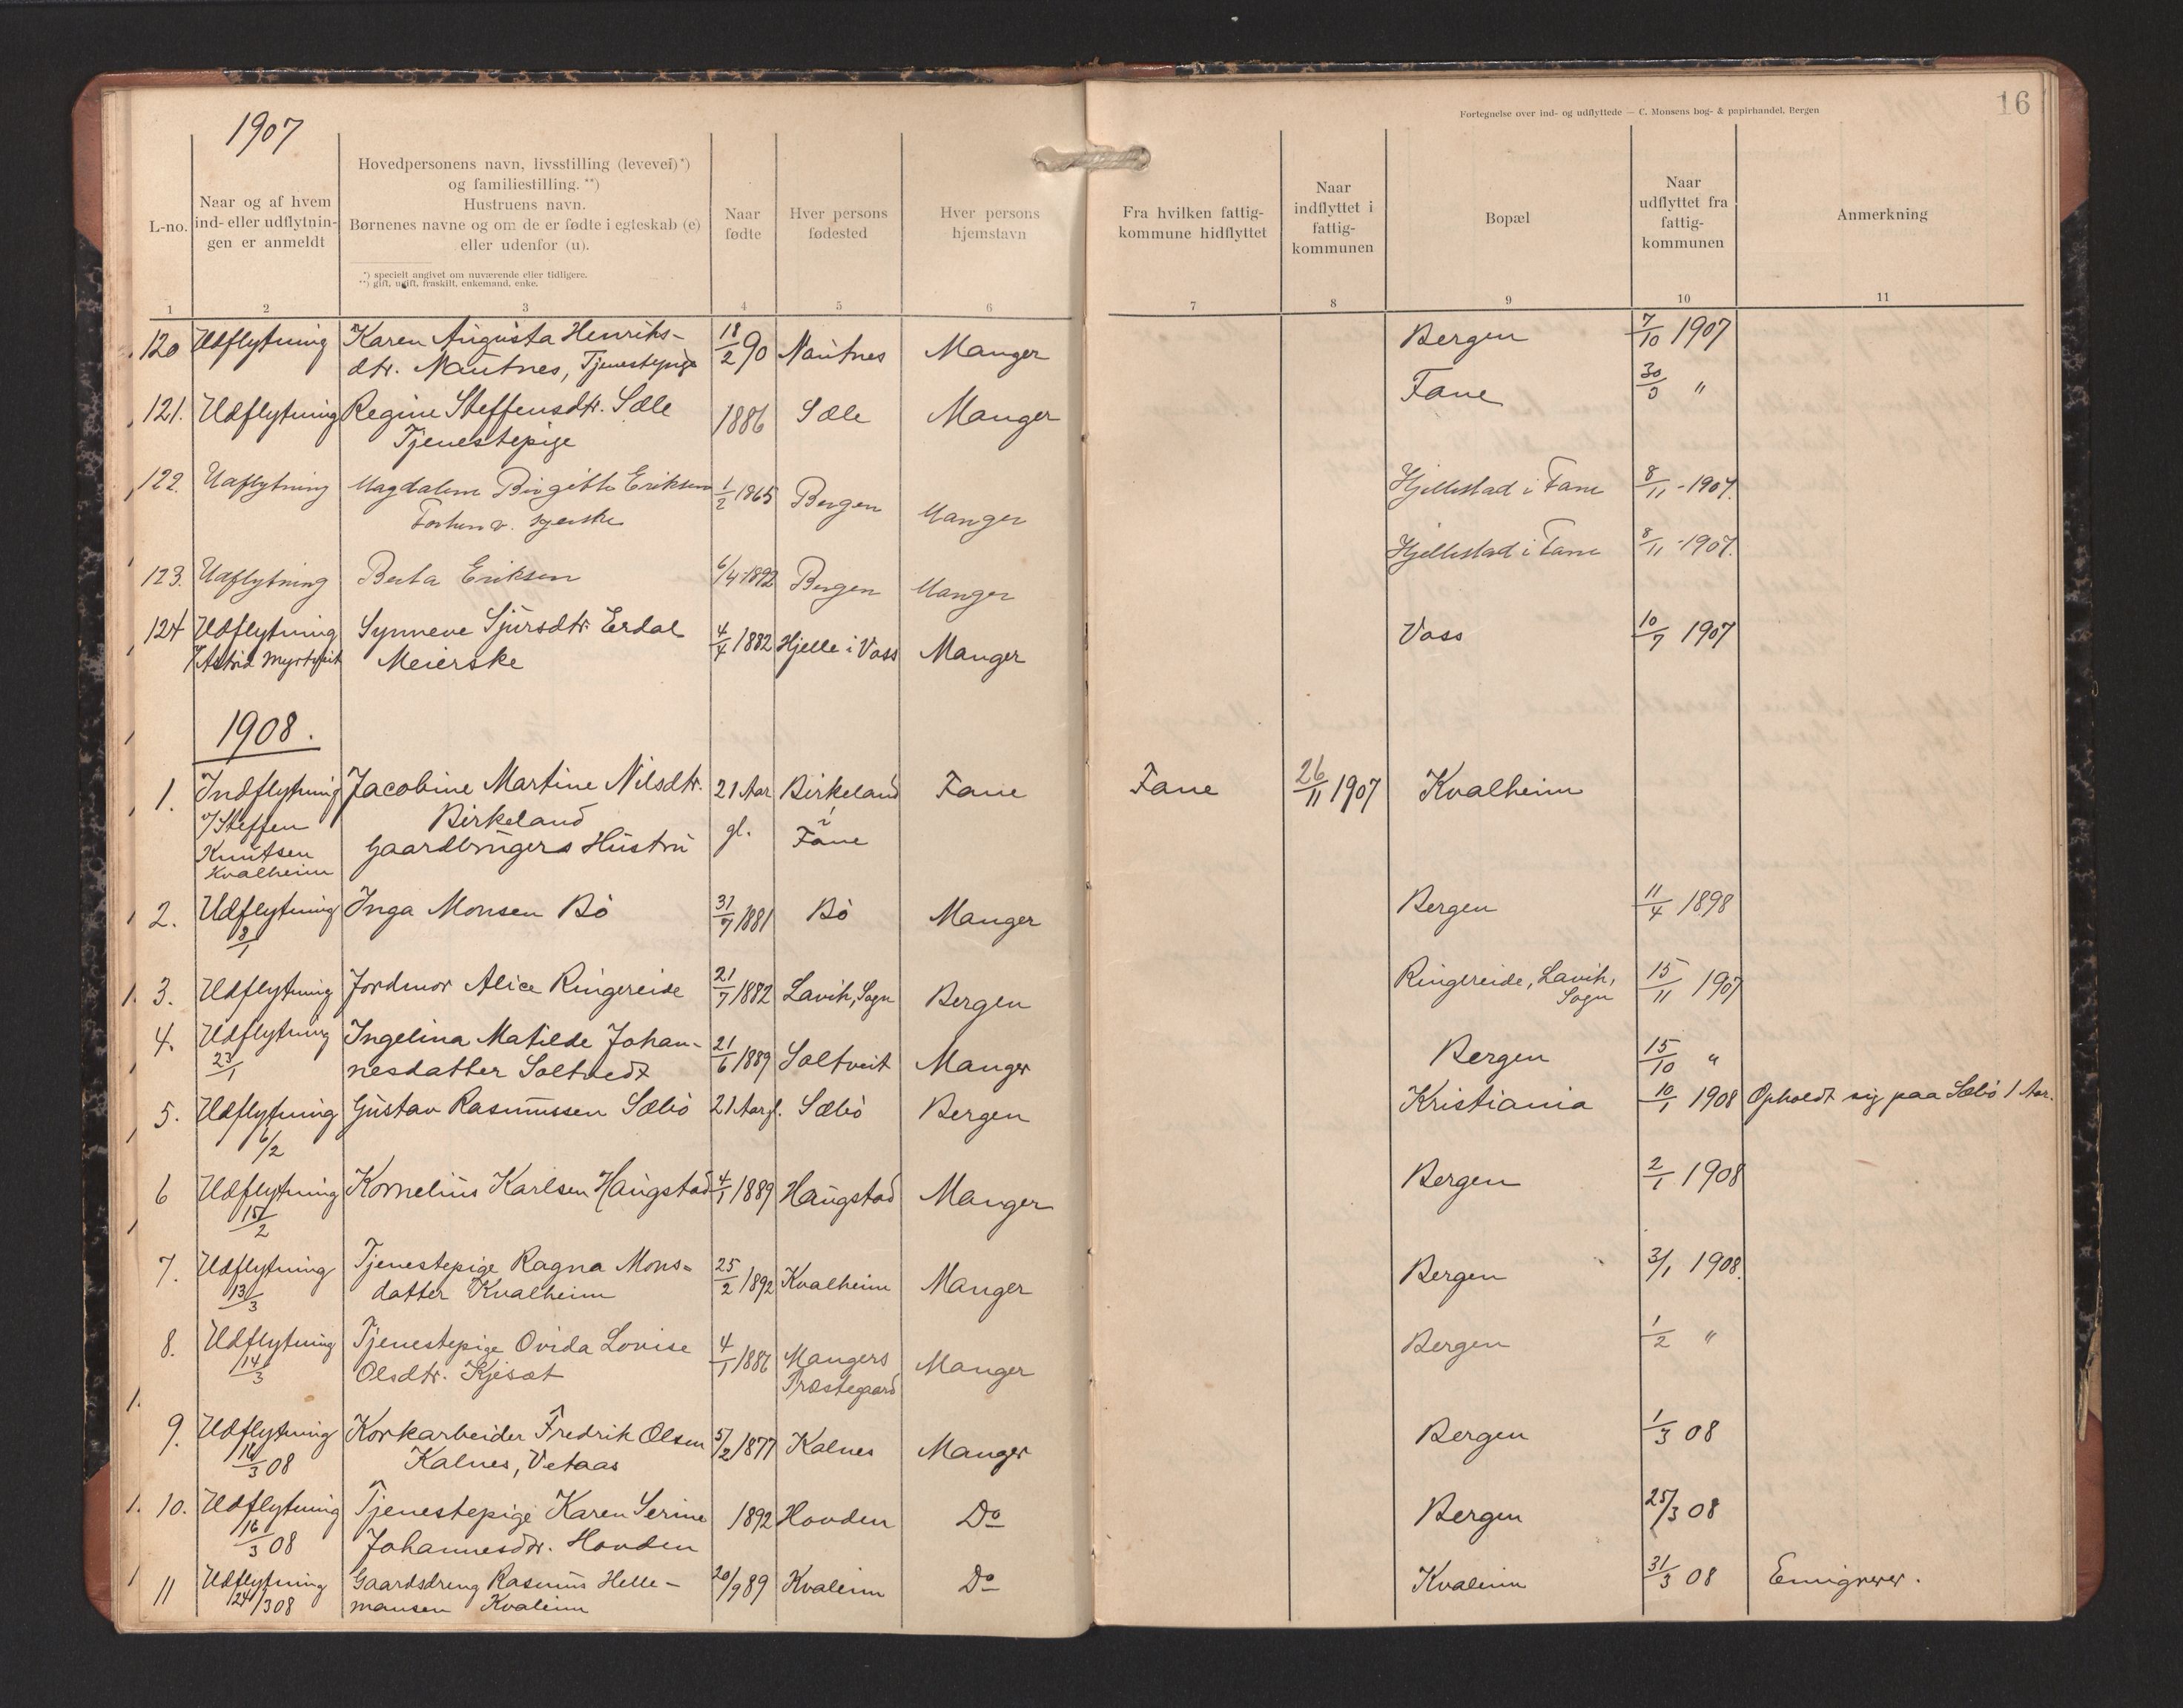 1907
Fortegnelse over ind- og udflyttede — C. Monsens bog- & papirhandel, Bergen
16
L-no.
Naar og af hvem
ind- eller udflytnin-
gen er anmeldt
Hovedpersonens navn, livsstilling (levevei)*)
og familiestilling. **)
Hustruens navn.
Børnenes navne og om de er fødte i egteskab (e)
eller udenfor (u).
*) specielt angivet om nuværende eller tidligere.
**) gift, ugift, fraskilt, enkemand, enke.
Naar
fødte
Hver persons
fødested
Hver persons
hjemstavn
Fra hvilken fattig-
kommune hidflyttet
Naar
indflyttet i
fattig-
kommunen
Bopæl
Naar
udflyttet fra
fattig-
kommunen
Anmerkning
1 2 3 4 5 6 7 8 9 10 11
120 Udflytning Karen Augusta Henriks- 18/2 90 Nautnes Manger Bergen 7/10 1907
dtr. Nautnes, Tjenestepige
121. Udflytning Regine Steffensdtr. Sæle 1886 Sæle Manger Fane 30/9 "
Tjenestepige
122. Udflytning Magdalene Birgitte Eriksen 1/2 1865 Bergen Manger Hjellestad i Fane 8/11 - 1907.
Forhenv. syerske
123. Udflytning Berta Eriksen 6/4 1892 Bergen Manger Hjellestad i Fane 8/11 - 1907.
124 Udflytning Synneve Sjursdtr. Erdal 4/4 1882 Hjelle i Voss Manger Voss 10/7 1907
v/ Astrid Myrtveit Meierske
1908.
1. Indflytning Jacobine Martine Nilsdtr. 21 Aar Birkeland Fane Fane 26/11 1907 Kvalheim
v/ Steffen Birkeland gl. i
Knutsen Gaardbrugers Hustru Fane
Kvalheim
2. Udflytning Inga Monsen Bö 31/7 1881 Bö Manger Bergen 11/4 1898
8/1
3. Udflytning Jordmor Alice Ringereide 21/7 1882 Lavik, Sogn Bergen Ringereide, Lavik, 15/11 1907
Sogn
4. Udflytning Ingelina Matilde Johan- 21/6 1889 Soltveit Manger Bergen 15/10 "
23/1 nesdatter Soltvedt
5. Udflytning Gustav Rasmussen Sæbö 21 Aar gl. Sæbö Bergen Kristiania 10/1 1908 Opholdt sig paa Sæbö 1 Aar.
6/2
6 Udflytning Kornelius Karlsen Haugstad 4/1 1889 Haugstad Manger Bergen 2/1 1908
15/2
7. Udflytning Tjenestepige Ragna Mons- 25/2 1892 Kvalheim Manger Bergen 3/1 1908.
13/3 datter Kvalheim
8. Udflytning Tjenestepige Ovida Lovise 4/1 1886 Mangers Manger Bergen 1/2 "
14/3 Olsdtr. Kjesæt Præstegaard
9. Udflytning Korkarbeider Fredrik Olsen 5/2 1877 Kalnes Manger Bergen 1/3 08
16/3 08 Kalnes, Vetaas
10. Udflytning Tjenestepige Karen Serine 1892 Hovden Do Bergen 25/3 08
16/3 08 Johannesdr. Hovden
11 Udflytning Gaardsdreng Rasmus Helle- 20/9 89 Kvaleim Do Kvaleim 31/3 08 Emigrerer.
24/3 08 mansen Kvaleim